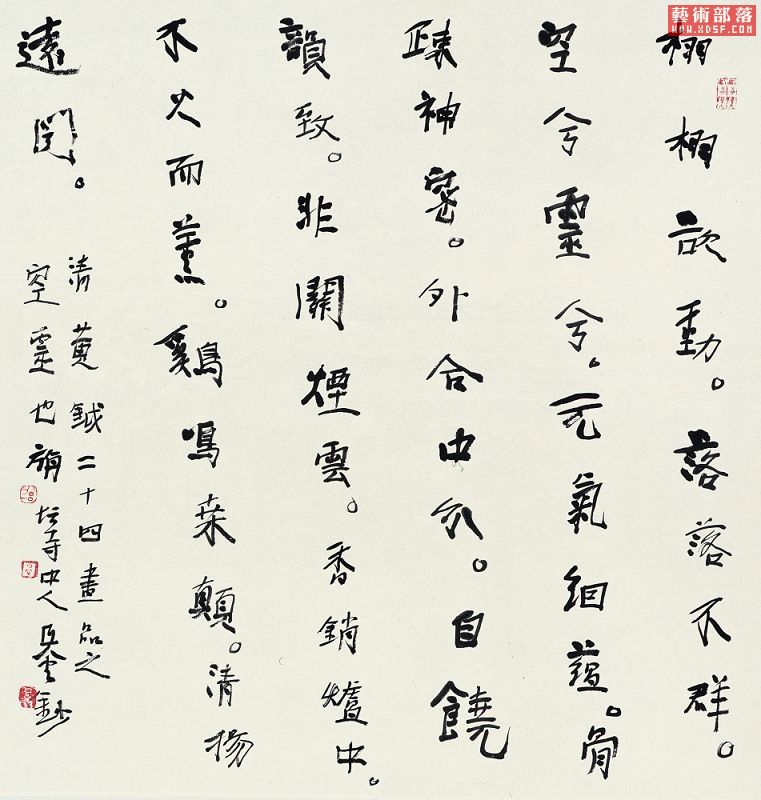 栩栩欲動。落落不群。
空兮靈兮。元氣絪縕。骨
疎神密。外合中分。自饒
韻致。非關煙雲。香銷爐中。
不火而薰。鷄鳴桑顛。清揚
遠聞。
清黄鉞二十四畫品之
空靈也
寺中人
鈔
藝術部落
WWW.XDSF.COM